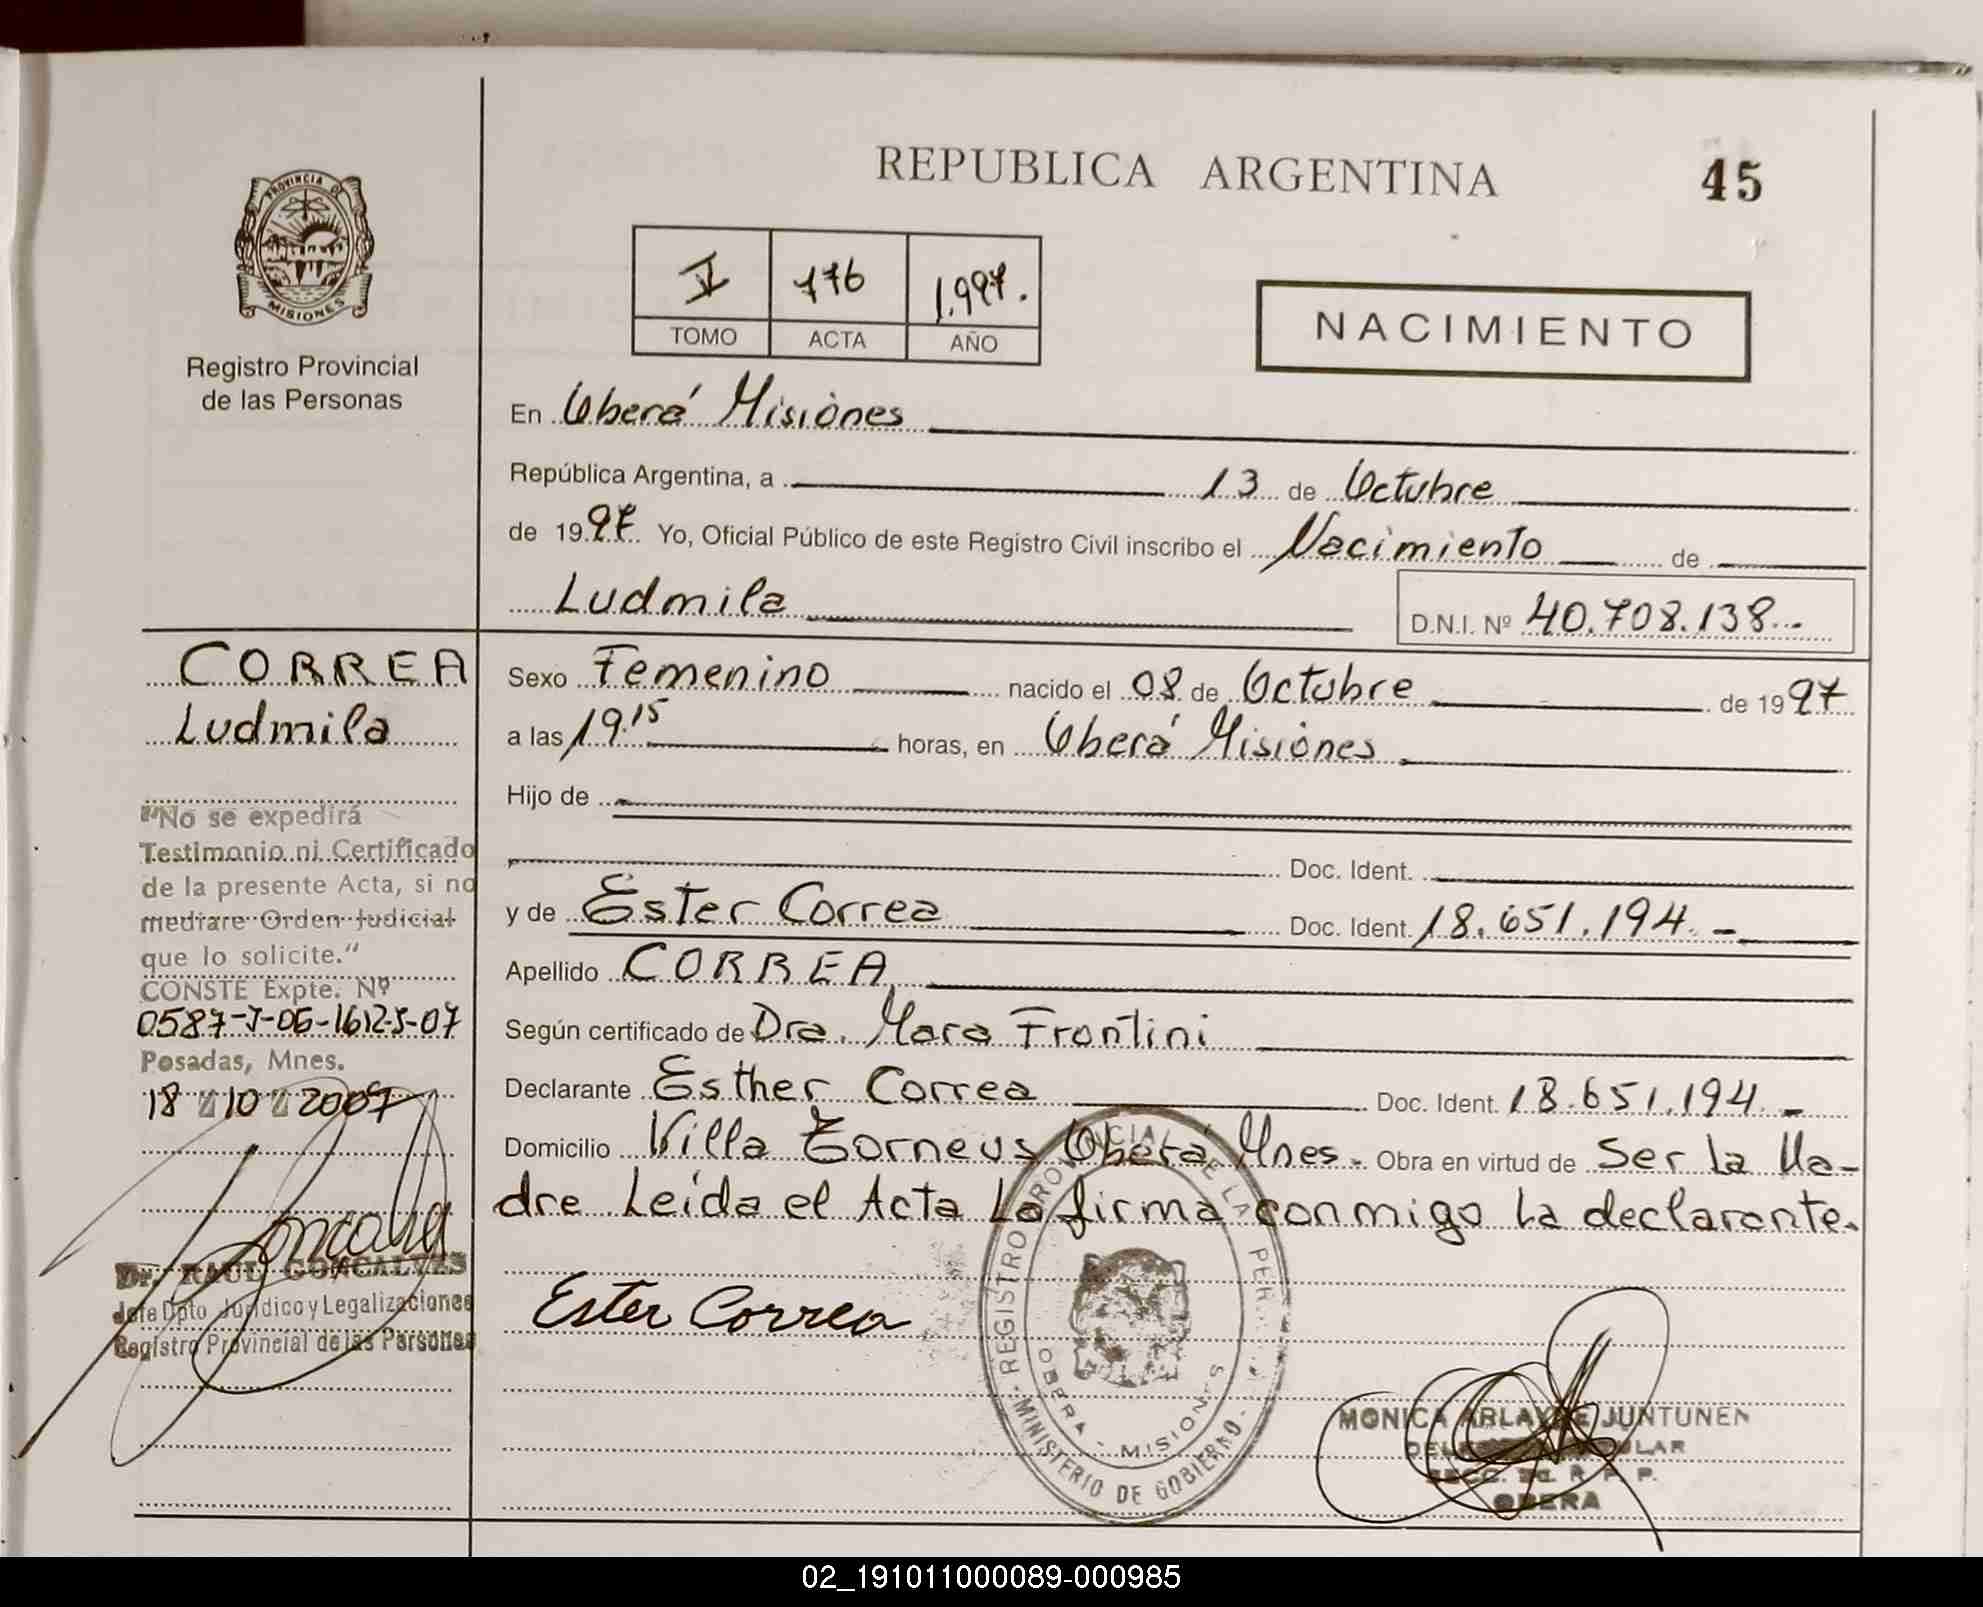 REPUBLICA ARGENTINA
45
PROVINCIA DE
MISIONES
Registro Provincial
de las Personas
V 776 1.997.
TOMO ACTA AÑO
NACIMIENTO
En Oberá Misiones
República Argentina, a 13 de Octubre
de 1997 Yo, Oficial Público de este Registro Civil inscribo el Nacimiento de
Ludmila
D.N.I. Nº 40.708.138
CORREA
Ludmila
"No se expedirá
Testimonio ni Certificado
de la presente Acta, si no
mediare Orden Judicial
que lo solicite."
CONSTE Expte. Nº
Posadas, Mnes.
18 10 2007
Dr. RAUL GONCALVES
Jefe Dpto Jurídico y Legalizaciones
Registro Provincial de las Personas
Sexo Femenino nacido el 08 de Octubre de 1997
a las 19.15 horas, en Oberá Misiones
Hijo de
Doc. Ident.
y de Ester Correa Doc. Ident. 18.651.194.-
Apellido CORREA
Según certificado de Dra. Mara Frontini
Declarante Esther Correa Doc. Ident. 18.651.194.-
Domicilio Villa Oberá Mnes. Obra en virtud de Ser la Ma-
dre Leída el Acta La firma conmigo la declarante.
Ester Correa
REGISTRO DE LA
OBERA - MISIONES
MINISTERIO DE GOBIERNO
MONICA JUNTUNEN
OBERA
02_191011000089-000985